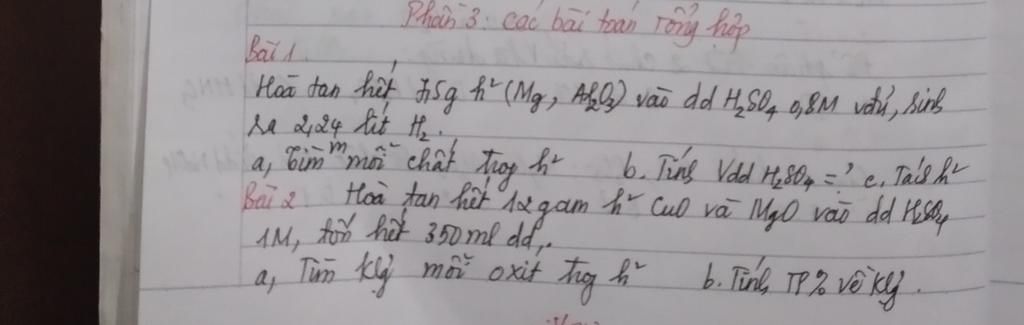 Phần 3: các bài toán tổng hợp
Bài 1.
Hoà tan hết 7,5g h² (Mg, Al2O3) vào dd H2SO4 0,8M vđủ, sinh
ra 2,24 lít H2.
a, Tìm m mỗi chất trog h² b. Tính Vdd H2SO4 = ? c. Tách h²
Bài 2 Hoà tan hết 12 gam h² CuO và MgO vào dd H2SO4
1M, tốn hết 350ml dd.
a, Tìm klg mỗi oxit trog h² b. Tính TP% về klg.